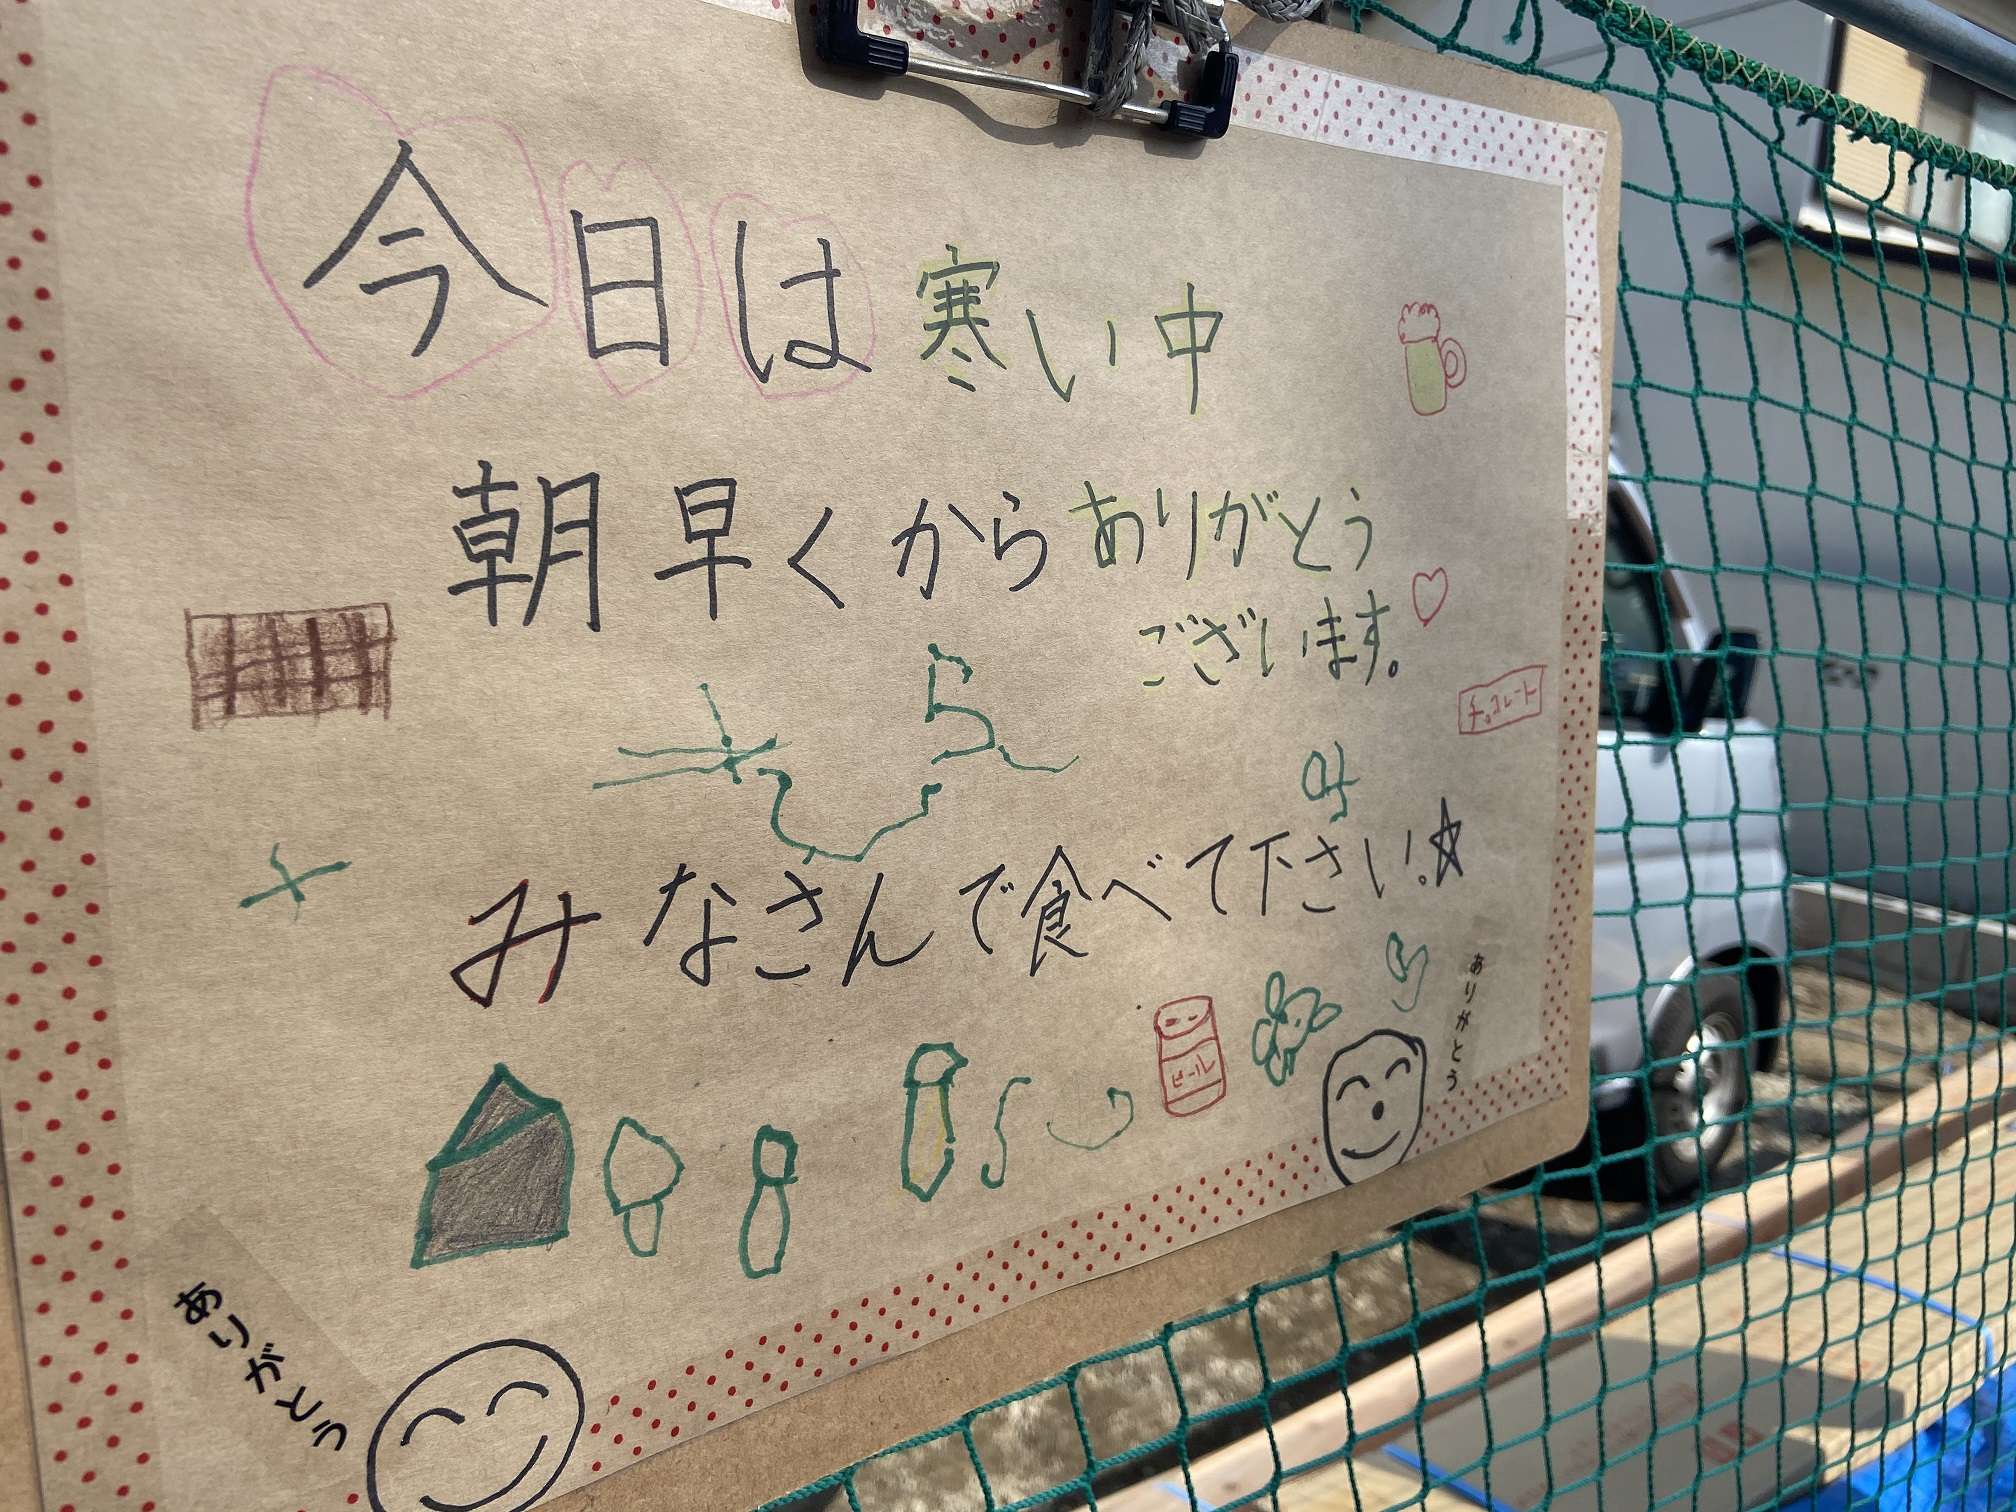 今日は寒い中
朝早くからありがとう
ございます。
チョコレート
みなさんで食べて下さい。☆
ビール
ありがとう
ありがとう